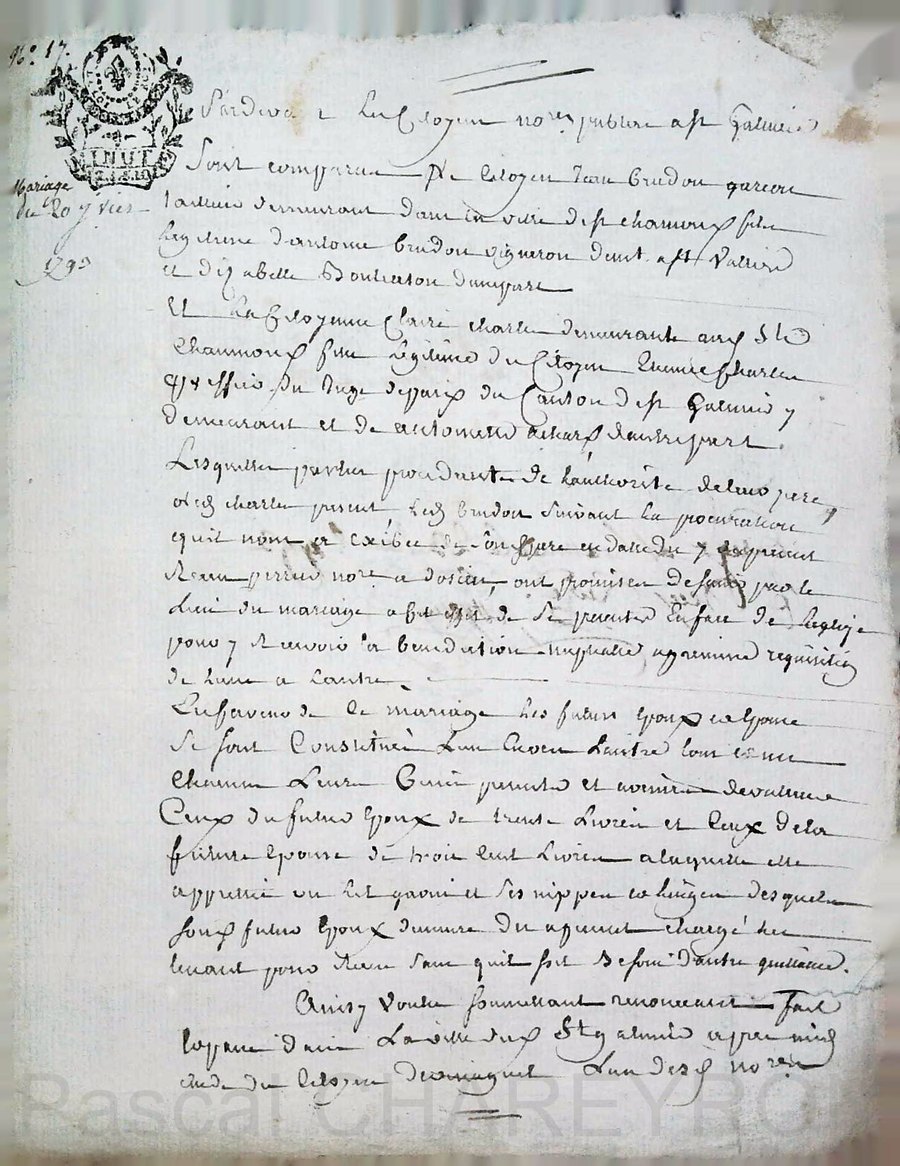 N°. 17.
LA LOI LE ROI
Mariage
du 20 jvier
1793
Pardevant Les Citoyens nores publics a St Galmier
Sont comparus Le Citoyen Jean brudon garcon
tailleur demeurant dans la ville de St chamoux fils
Legitime d'antoine brudon vigneron demt a St Vallier
et d'Izabelle dunepart
Et La Citoyenne Claire charles demeurant aud St
Chaumoux fille Légitime du Citoyen charles
greffier du Juge depaix du Canton de St Galmier y
demeurant et de antoinette dautrepart
Lesquelles parties procédants de Lauthorité de leurs peres
led charles present Led brudon Suivant La procuration
quil nous a exibée de Son pere en datte du 7 du present
Recue perrier nore a ont promis de faire par le
Lien du mariage a cet effet de Se presenter En face de Leglise
pour y Recevoir la benediction nuptialle a premiere requisition
de Lune a Lautre
En faveur de Ce mariage Les futurs Epoux et Epouse
Se sont Constitués Lun Envers Lautre tous et un
Chacuns Leurs Biens presents et avenirs devaleur
Ceux du futur Epoux de trente Livres et Ceux de la
future Epouse de trois Cent Livres a laquelle elle
apprecie un Lit garni et Ses nippes et Linges desquels
Son futur Epoux demeure du apresent chargé Les
tenant pour Recus Sans quil soit Besoin d'autre quittance.
Ainsy voulu soumettant renonceant fait
et passé dans La ville dud St galmier apres midi
etude du Citoyen Lun desd nores
Pascal CHAREYRON